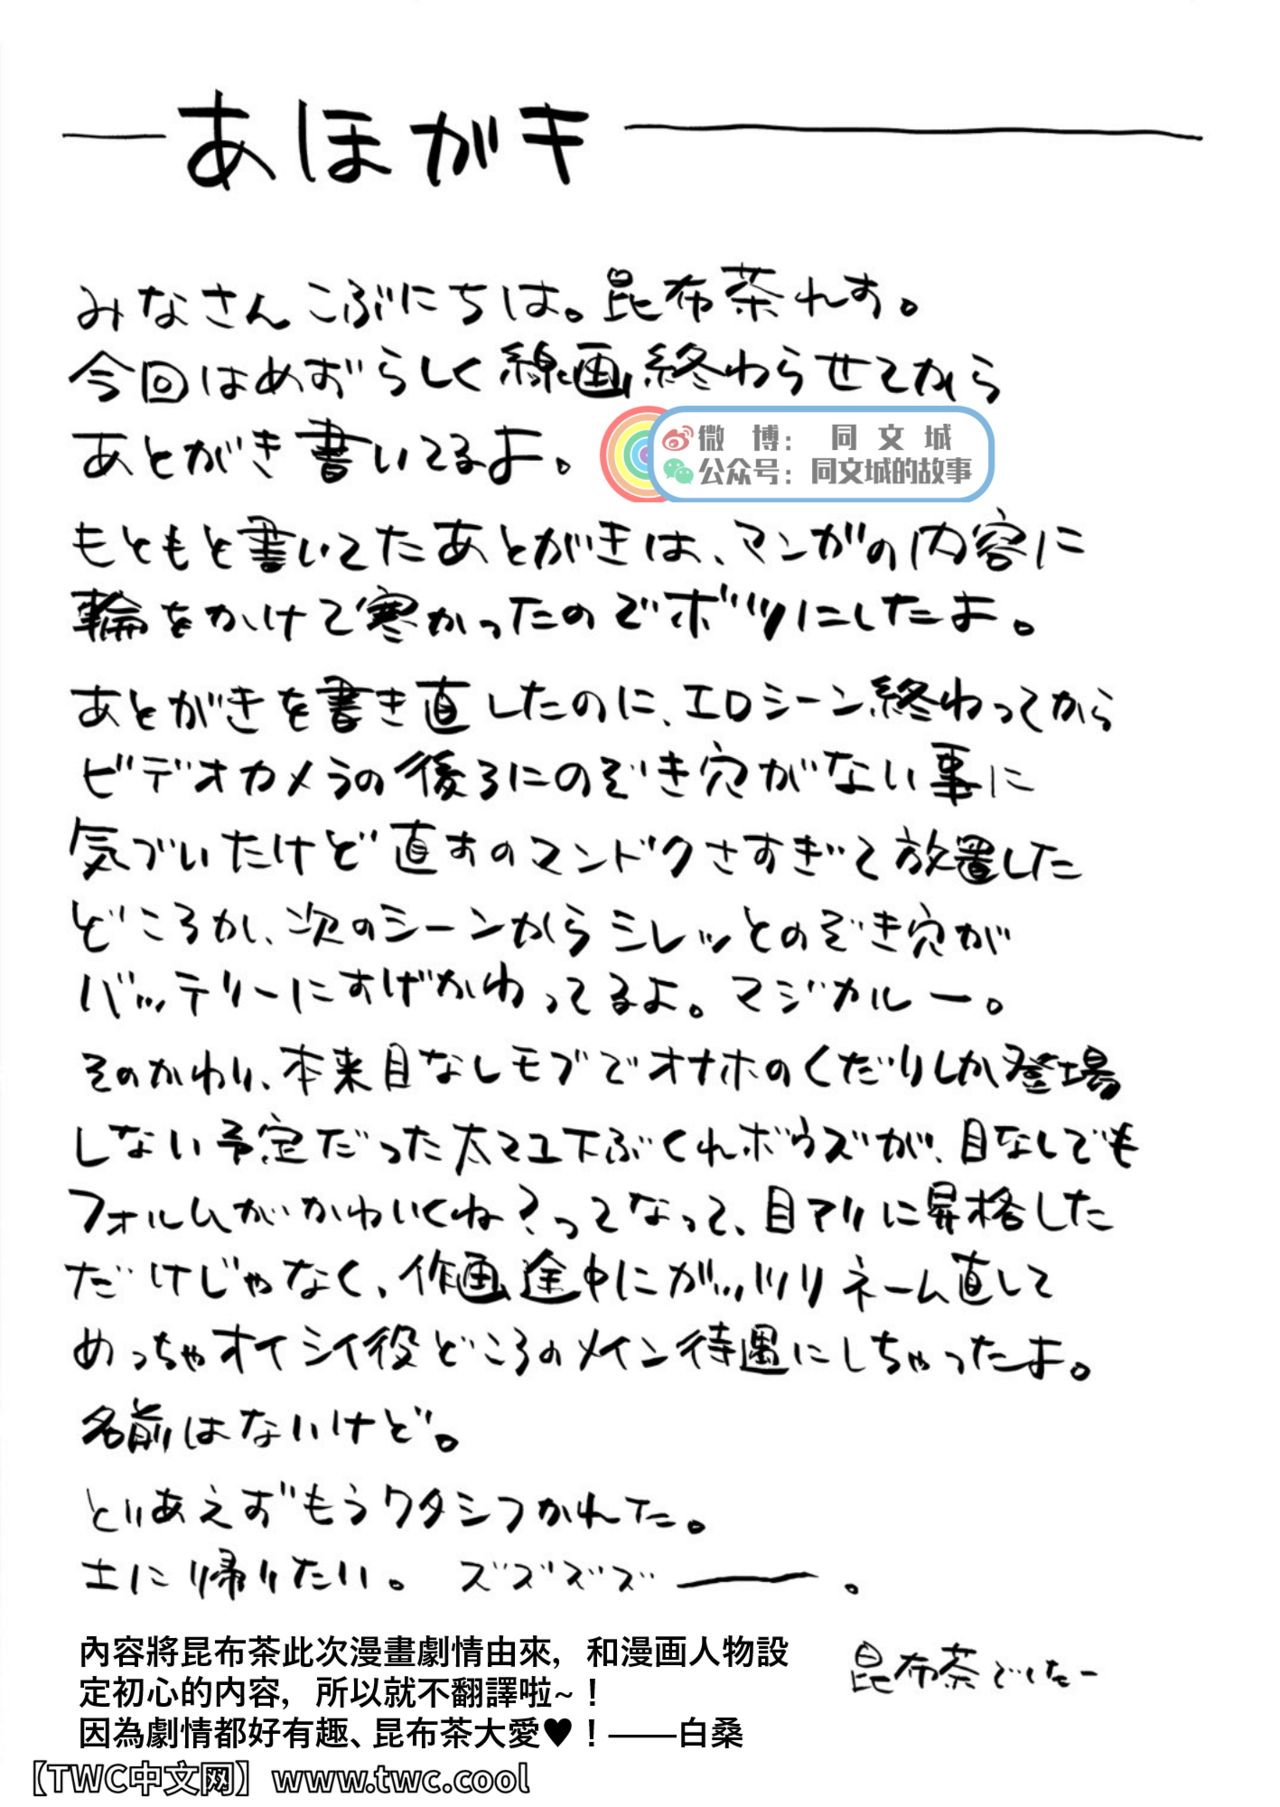 あほがキ
みなさんこぶにちは。昆布茶れす。
今回はめずらしく線画終わらせてから
あとがき書いてるよ。
微 博： 同 文 城
公众号：同文城的故事
もともと書いてたあとがきは、マンガの内容に
輪をかけて寒かったのでボツにしたよ。
あとがきを書き直したのに、エロシーン終わってから
ビデオカメラの後ろにのぞき穴がない事に
気づいたけど直すのマンドクさすぎて放置した
どころか、次のシーンからシレッとのぞき穴が
バッテリーにすげかわってるよ。マジカルー。
そのかわり、本来目なしモブでオナホのくだりしか登場
しない予定だった太マユ下ぶくれボウズが、目なしでも
フォルムがかわいくね？ってなって、目アリに昇格した
だけじゃなく、作画途中にガッツリネーム直して
めっちゃオイシイ役どころのメイン待遇にしちゃったよ。
名前はないけど。
とりあえずもうワタシつかれた。
土に帰りたい。 ズズズズ――。
昆布茶でしたー
內容將昆布茶此次漫畫劇情由來，和漫画人物設
定初心的內容，所以就不翻譯啦~！
因為劇情都好有趣、昆布茶大愛♥！——白桑
【TWC中文网】www.twc.cool